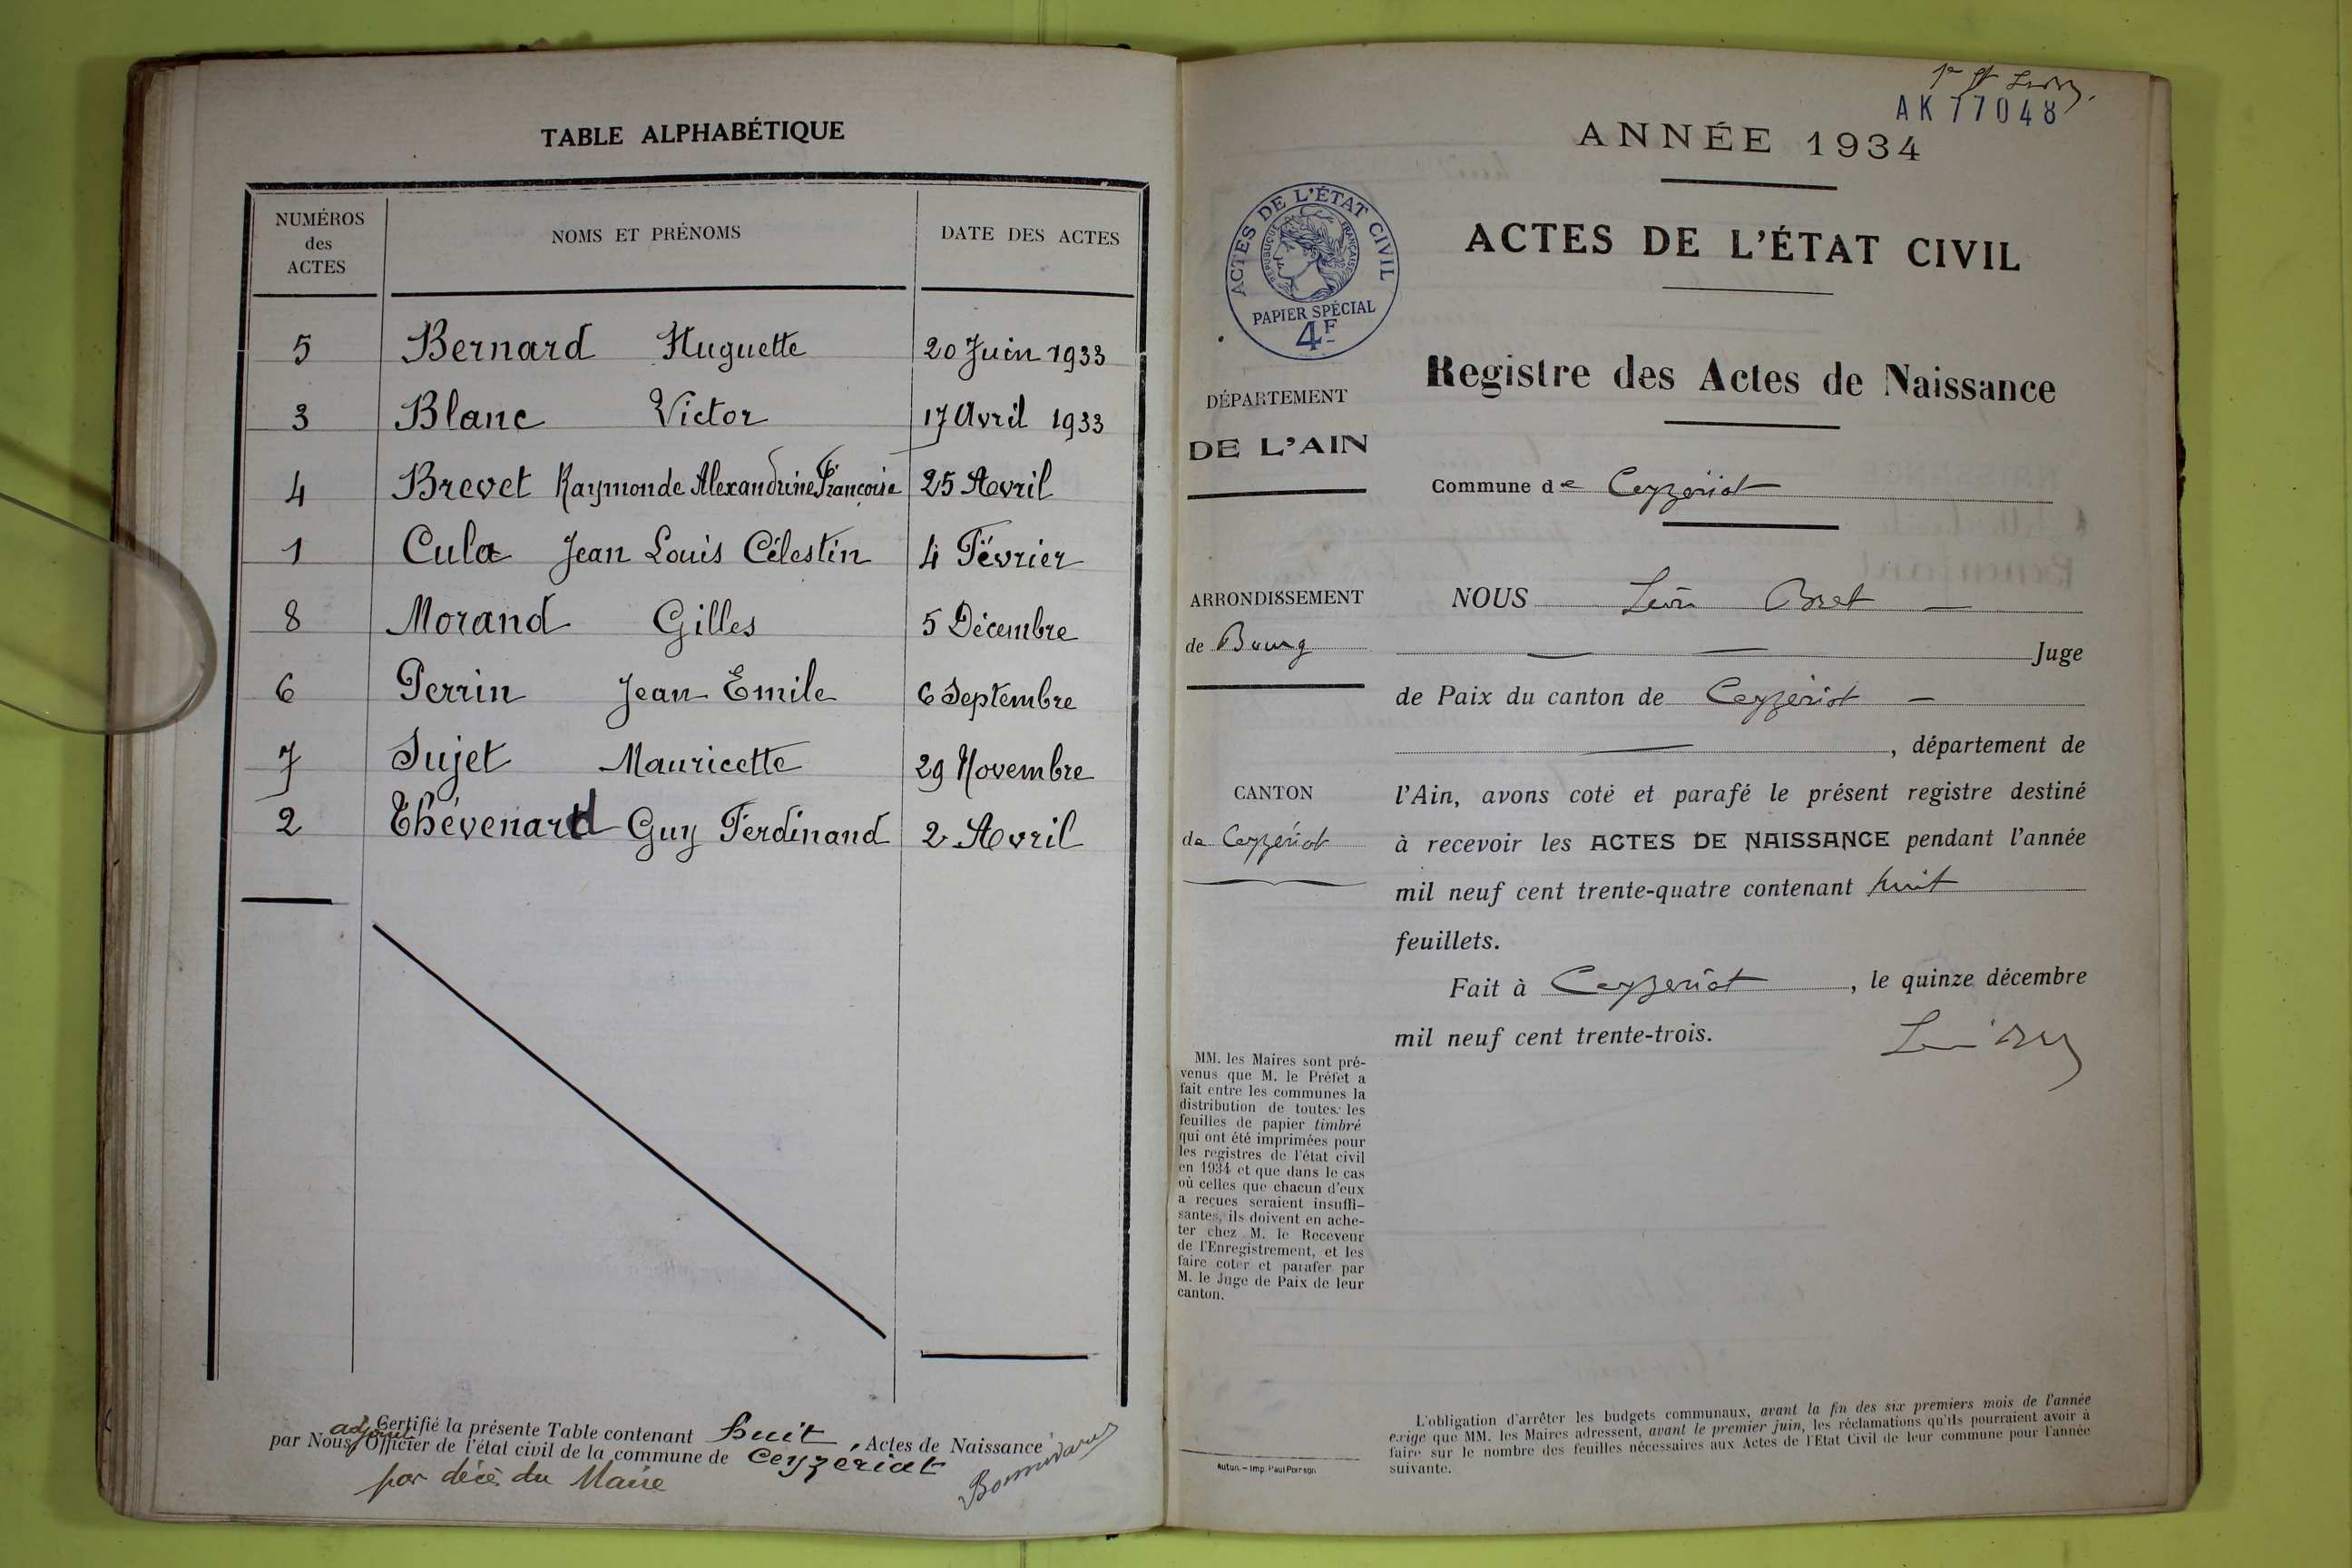 TABLE ALPHABÉTIQUE
NUMÉROS
des
ACTES
NOMS ET PRÉNOMS
DATE DES ACTES
5 Bernard Huguette 20 Juin 1933
3 Blanc Victor 17 Avril 1933
4 Brevet Raymonde Alexandrine Françoise 25 Avril
1 Cula Jean Louis Célestin 4 Février
8 Morand Gilles 5 Décembre
6 Perrin Jean Emile 6 Septembre
7 Sujet Mauricette 29 Novembre
2 Thévenard Guy Ferdinand 2 Avril
Certifié la présente Table contenant huit, Actes de Naissance
adjoint
par Nous, Officier de l'état civil de la commune de Ceyzeriat
par décè du Maire
AK 77048
ANNÉE 1934
ACTES DE L'ÉTAT CIVIL
RÉPUBLIQUE FRANÇAISE
PAPIER SPÉCIAL
4F
ACTES DE L'ÉTAT CIVIL
Registre des Actes de Naissance
DÉPARTEMENT
DE L'AIN
Commune de Ceyzériat
ARRONDISSEMENT
de Bourg
NOUS Léon Bret
Juge
de Paix du canton de Ceyzériat
, département de
CANTON
de Ceyzériat
l'Ain, avons coté et parafé le présent registre destiné
à recevoir les ACTES DE NAISSANCE pendant l'année
mil neuf cent trente-quatre contenant huit
feuillets.
Fait à Ceyzériat, le quinze décembre
mil neuf cent trente-trois.
MM. les Maires sont pré-
venus que M. le Préfet a
fait entre les communes la
distribution de toutes les
feuilles de papier timbré
qui ont été imprimées pour
les registres de l'état civil
en 1934 et que dans le cas
où celles que chacun d'eux
a reçues seraient insuffi-
santes, ils doivent en ache-
ter chez M. le Receveur
de l'Enregistrement, et les
faire coter et parafer par
M. le Juge de Paix de leur
canton.
Autun. – Imp. Paul Poirson
L'obligation d'arrêter les budgets communaux, avant la fin des six premiers mois de l'année
exige que MM. les Maires adressent, avant le premier juin, les réclamations qu'ils pourraient avoir à
faire sur le nombre des feuilles nécessaires aux Actes de l'Etat Civil de leur commune pour l'année
suivante.